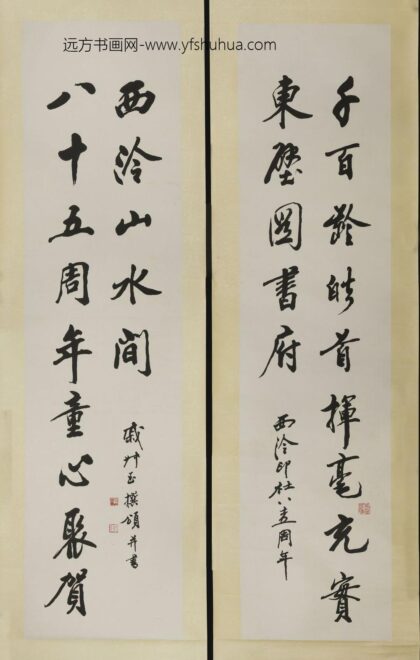 远方书画网-www.yfshuhua.com
千百齡皓首揮毫充實
東壁圖書府
西泠印社八五周年
八十五周年童心聚賀
西泠山水間
戚叔玉撰頌并書